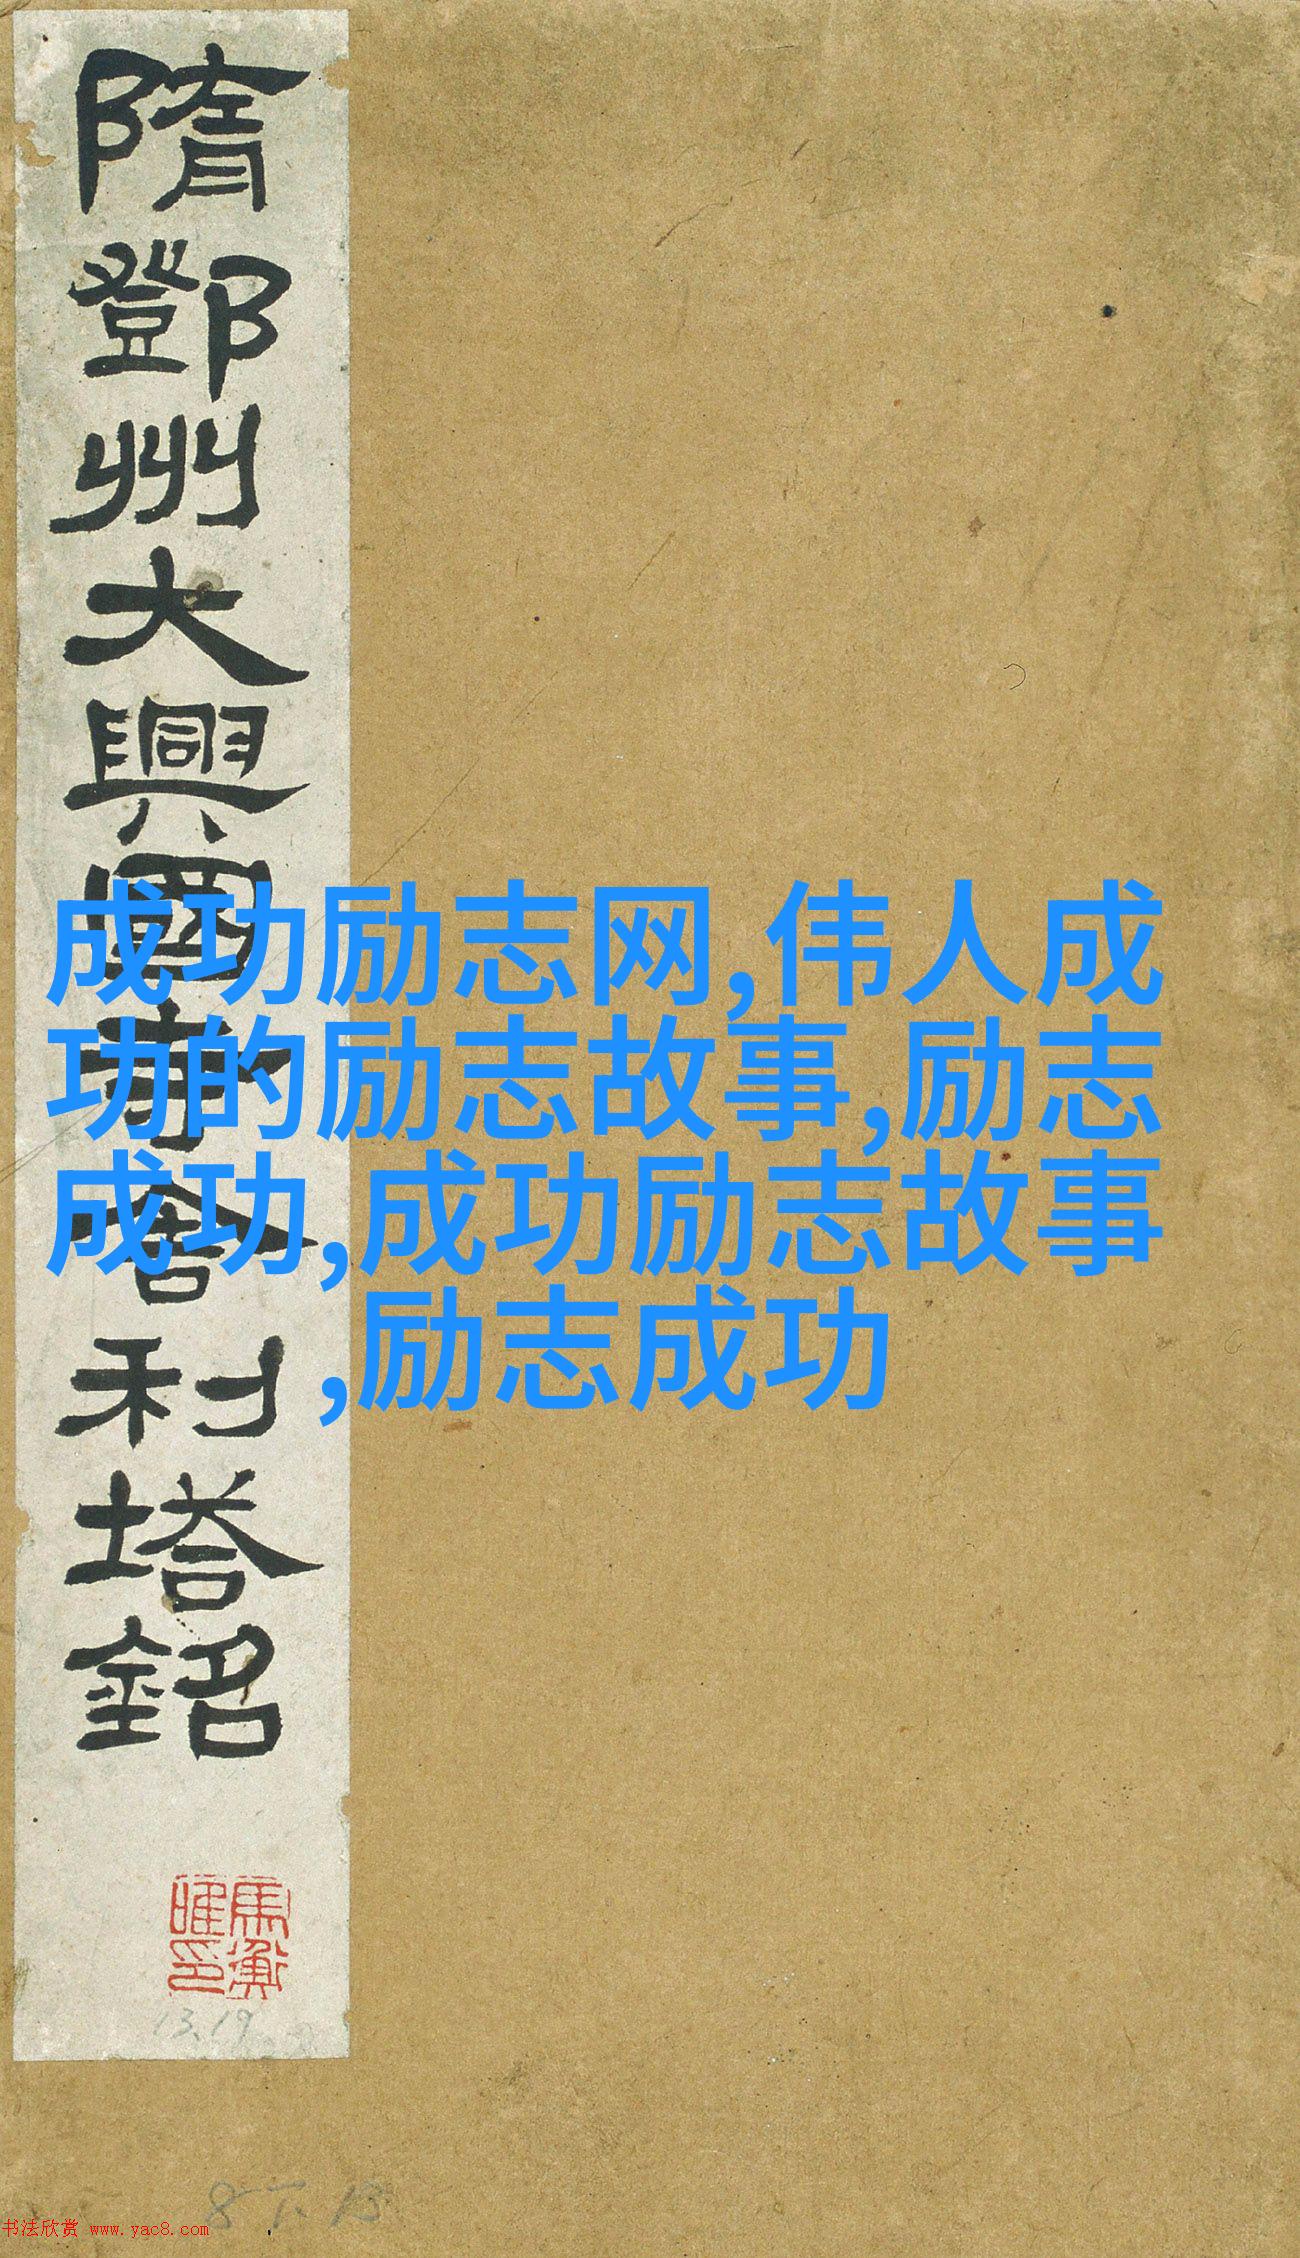 隋鄧州大興國寺舍利塔銘
成功励志网,伟人成
功的励志故事,励志
成功,成功励志故事
,励志成功
馬衡
唯印
13.19
8下13
书法欣赏 www.yac8.com